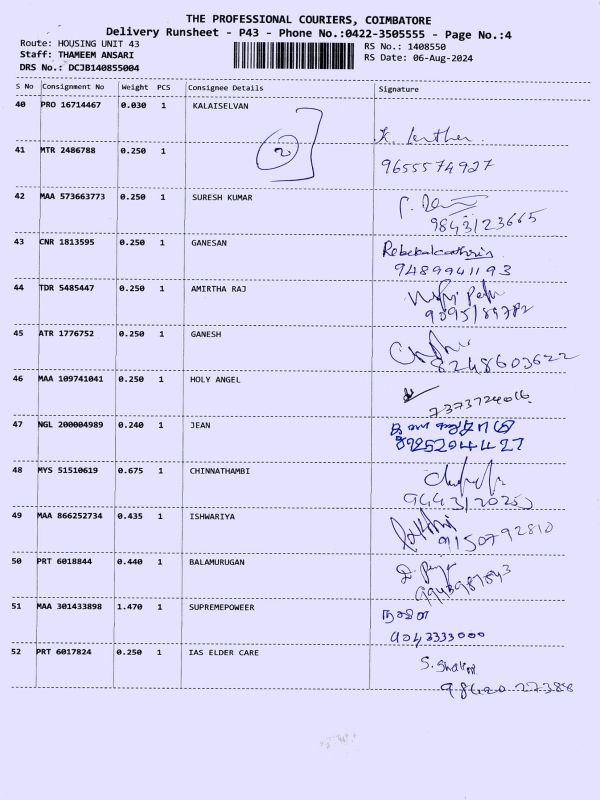 THE PROFESSIONAL COURIERS, COIMBATORE
Delivery Runsheet - P43 - Phone No.:0422-3505555 - Page No.:4
Route: HOUSING UNIT 43
Staff: THAMEEM ANSARI
DRS No.: DCJB140855004
RS No.: 1408550
RS Date: 06-Aug-2024
S No Consignment No Weight PCS Consignee Details Signature
40 PRO 16714467 0.030 1 KALAISELVAN
2
41 MTR 2486788 0.250 1 9655574927
42 MAA 573663773 0.250 1 SURESH KUMAR
9843123665
43 CNR 1813595 0.250 1 GANESAN
9489941193
44 TDR 5485447 0.250 1 AMIRTHA RAJ
45 ATR 1776752 0.250 1 GANESH
8248603622
46 MAA 109741041 0.250 1 HOLY ANGEL
47 NGL 200004989 0.240 1 JEAN
48 MYS 51510619 0.675 1 CHINNATHAMBI
49 MAA 866252734 0.435 1 ISHWARIYA
9150792810
50 PRT 6018844 0.440 1 BALAMURUGAN
51 MAA 301433898 1.470 1 SUPREMEPOWEER
9043333000
52 PRT 6017824 0.250 1 IAS ELDER CARE